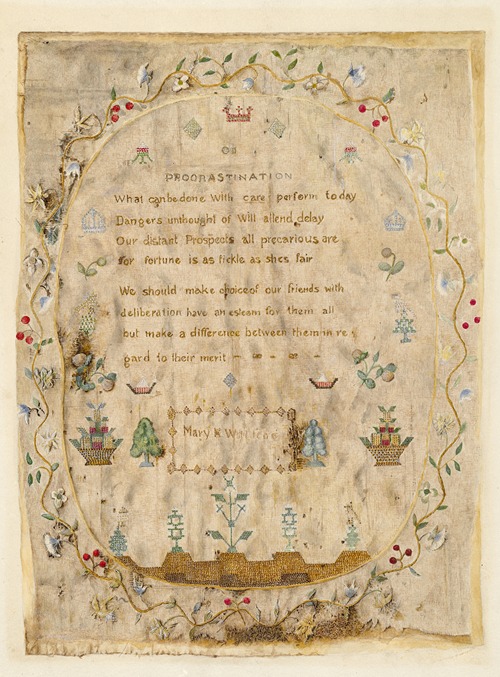 On
PROCRASTINATION
What can be done With care perform to day
Dangers unthought of Will attend delay
Our distant Prospects all precarious are
for fortune is as fickle as shes fair
We should make choice of our friends with
deliberation have an esteem for them all
but make a difference between them in re
gard to their merit
Mary